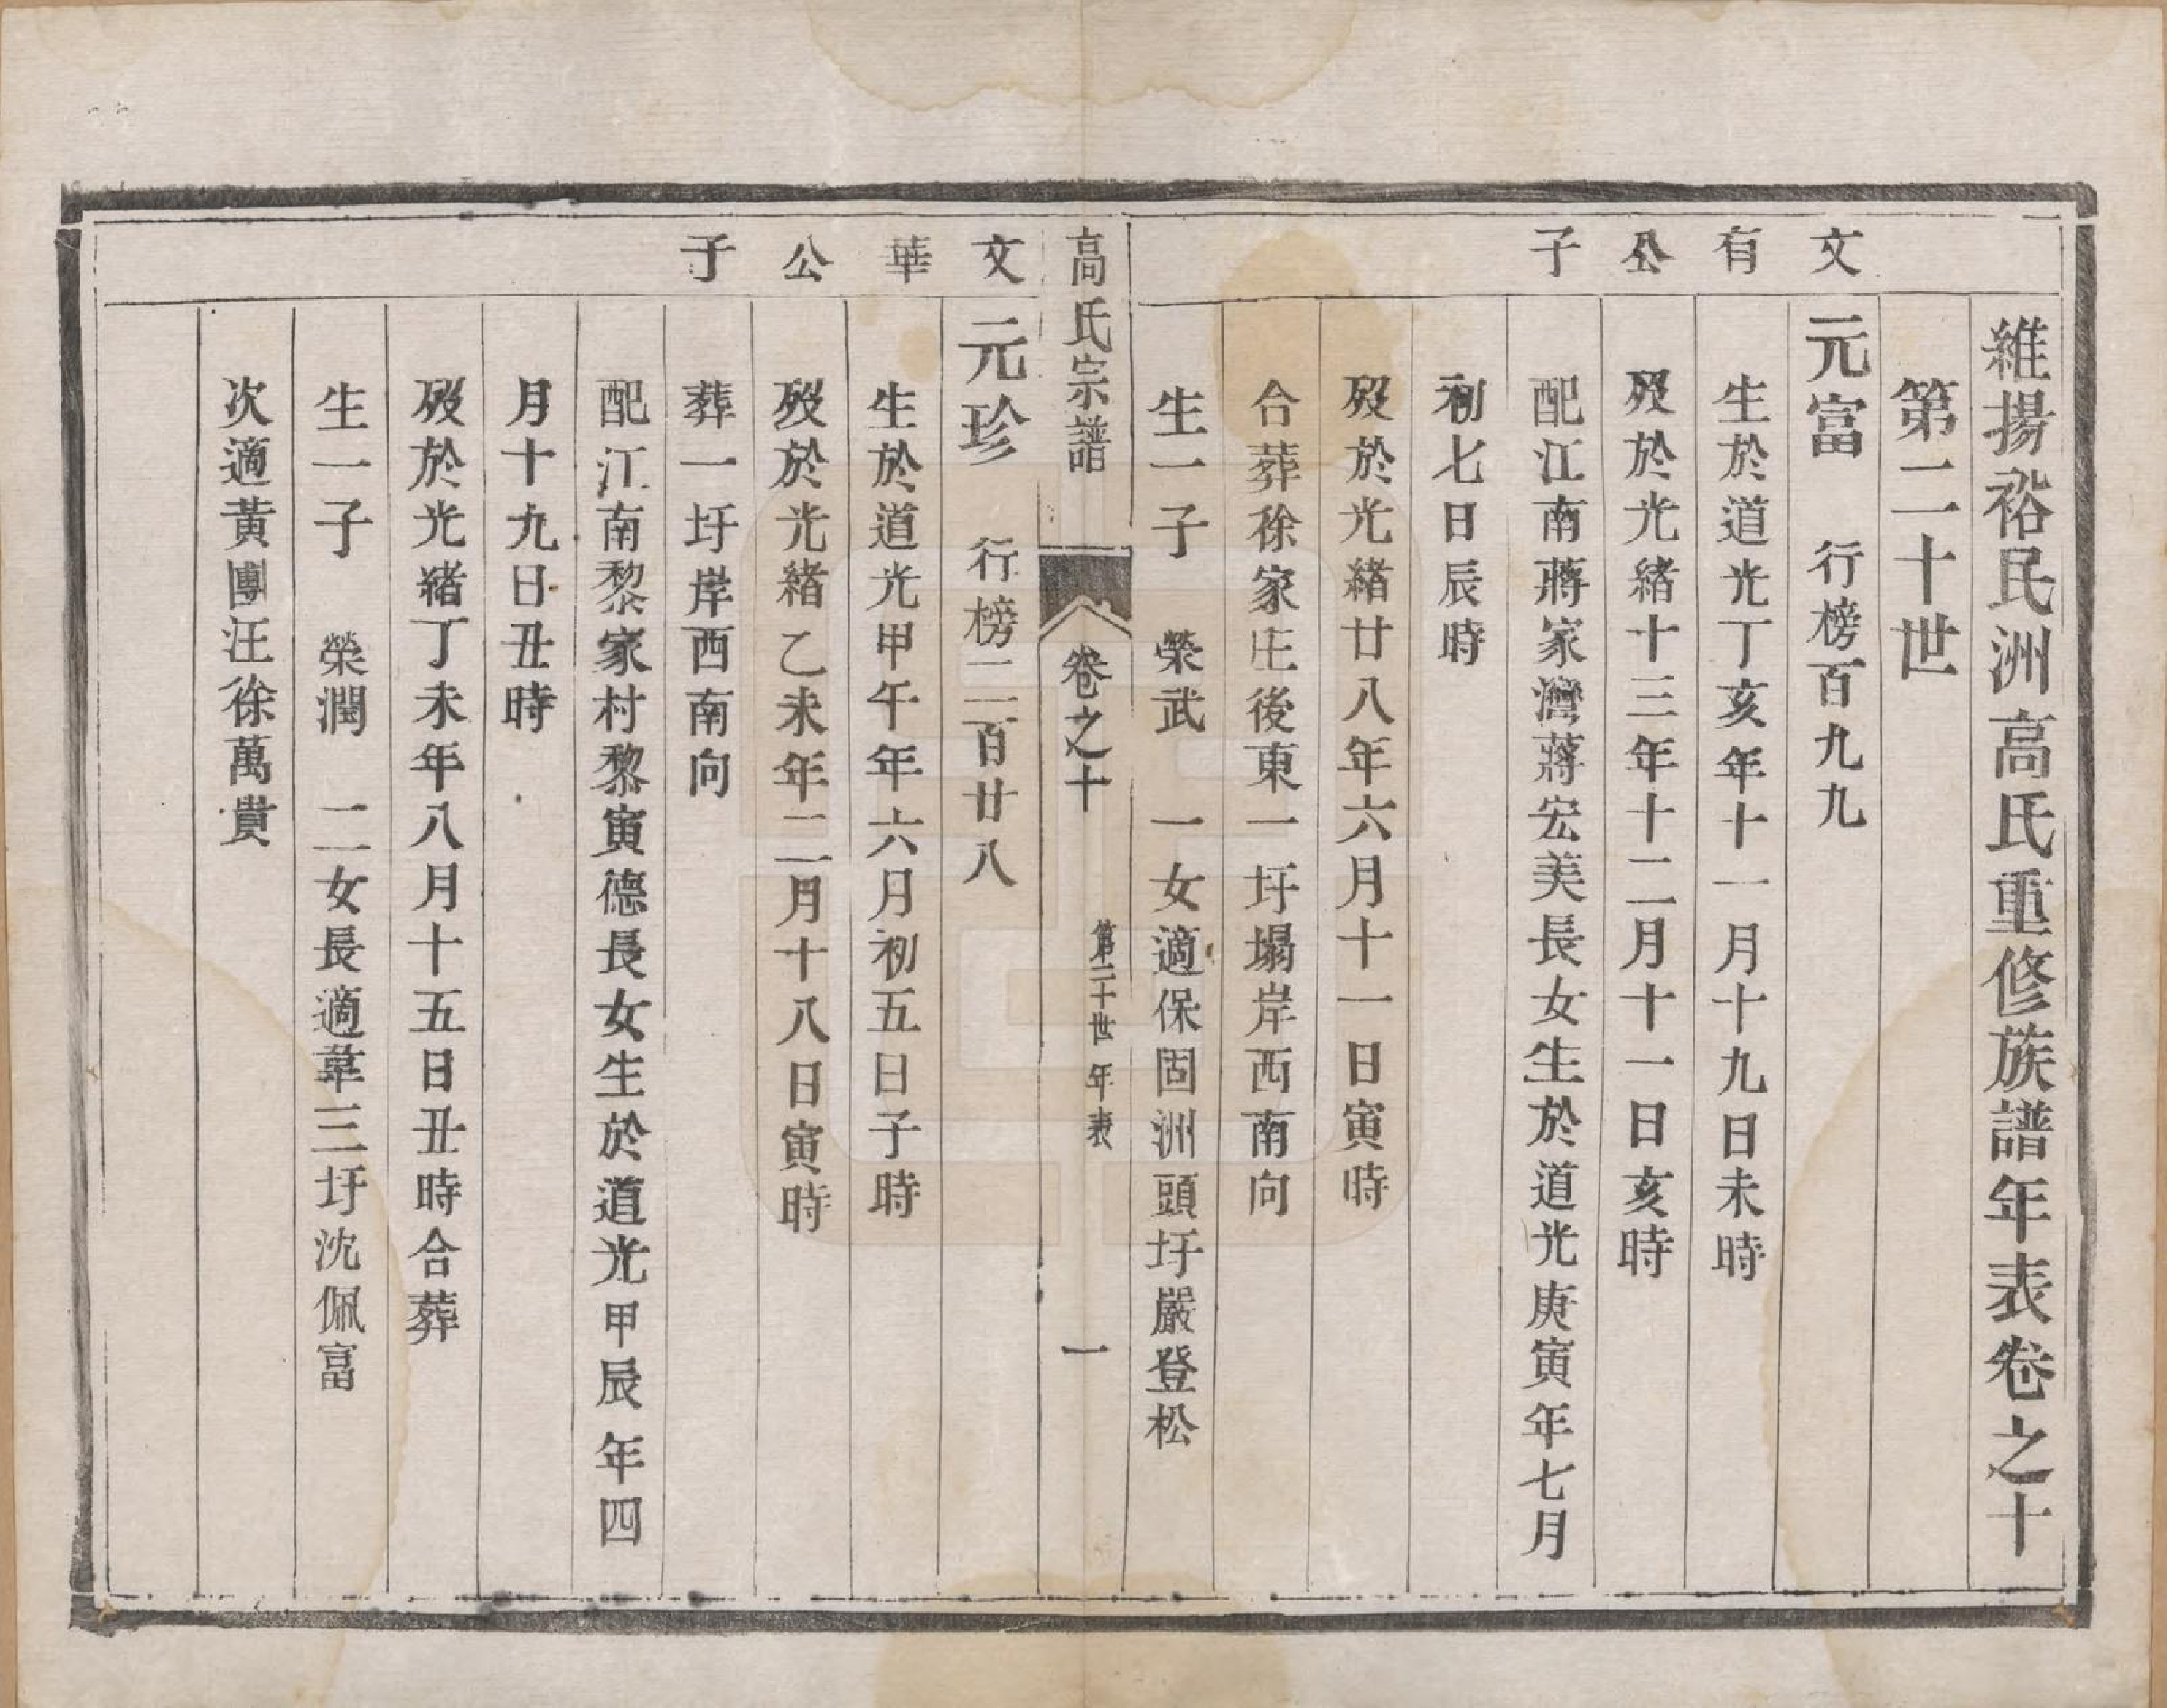 維揚裕民洲高氏重修族譜年表卷之十
第二十世
文有公子
元富　行榜百九九
生於道光丁亥年十一月十九日未時
歿於光緒十三年十二月十一日亥時
配江南蔣家灣蔣宏美長女生於道光庚寅年七月
初七日辰時
歿於光緒廿八年六月十一日寅時
合葬徐家庄後東一圩塌岸西南向
生一子　榮武　一女適保固洲頭圩嚴登松
高氏宗譜　卷之十　第二十世年表　一
文華公子
元珍　行榜二百廿八
生於道光甲午年六月初五日子時
歿於光緒乙未年二月十八日寅時
葬一圩岸西南向
配江南黎家村黎寅德長女生於道光甲辰年四
月十九日丑時
歿於光緒丁未年八月十五日丑時合葬
生一子　榮潤　二女長適韋三圩沈佩富
次適黃團汪徐萬貴